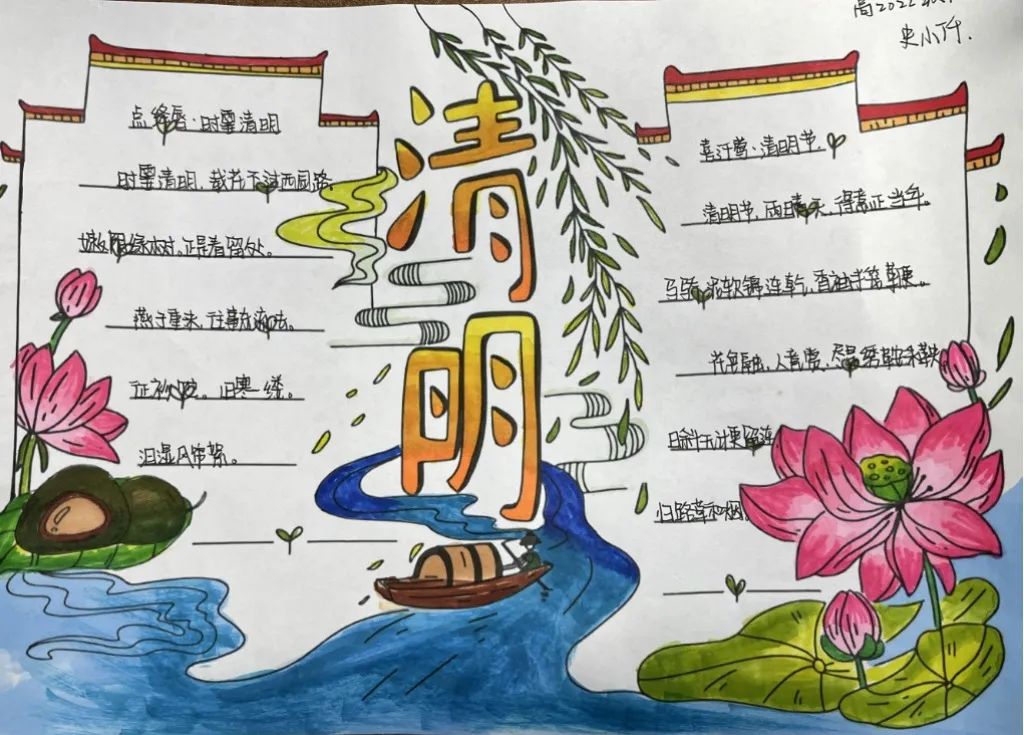 高2022
史小仟.
清明
点绛唇·时霎清明
时霎清明,载花不过西园路。
嫩阴绿树。正是春留处。
燕子重来,往事东流去。
征衫贮。旧寒一缕。
泪湿风帘絮。
喜迁莺·清明节
清明节,雨晴天,得意正当年。
马骄泥软锦连乾,香袖半笼鞭。
花色融,人竞赏,尽是绣鞍朱鞅
日斜无计更留连
归路草和烟。